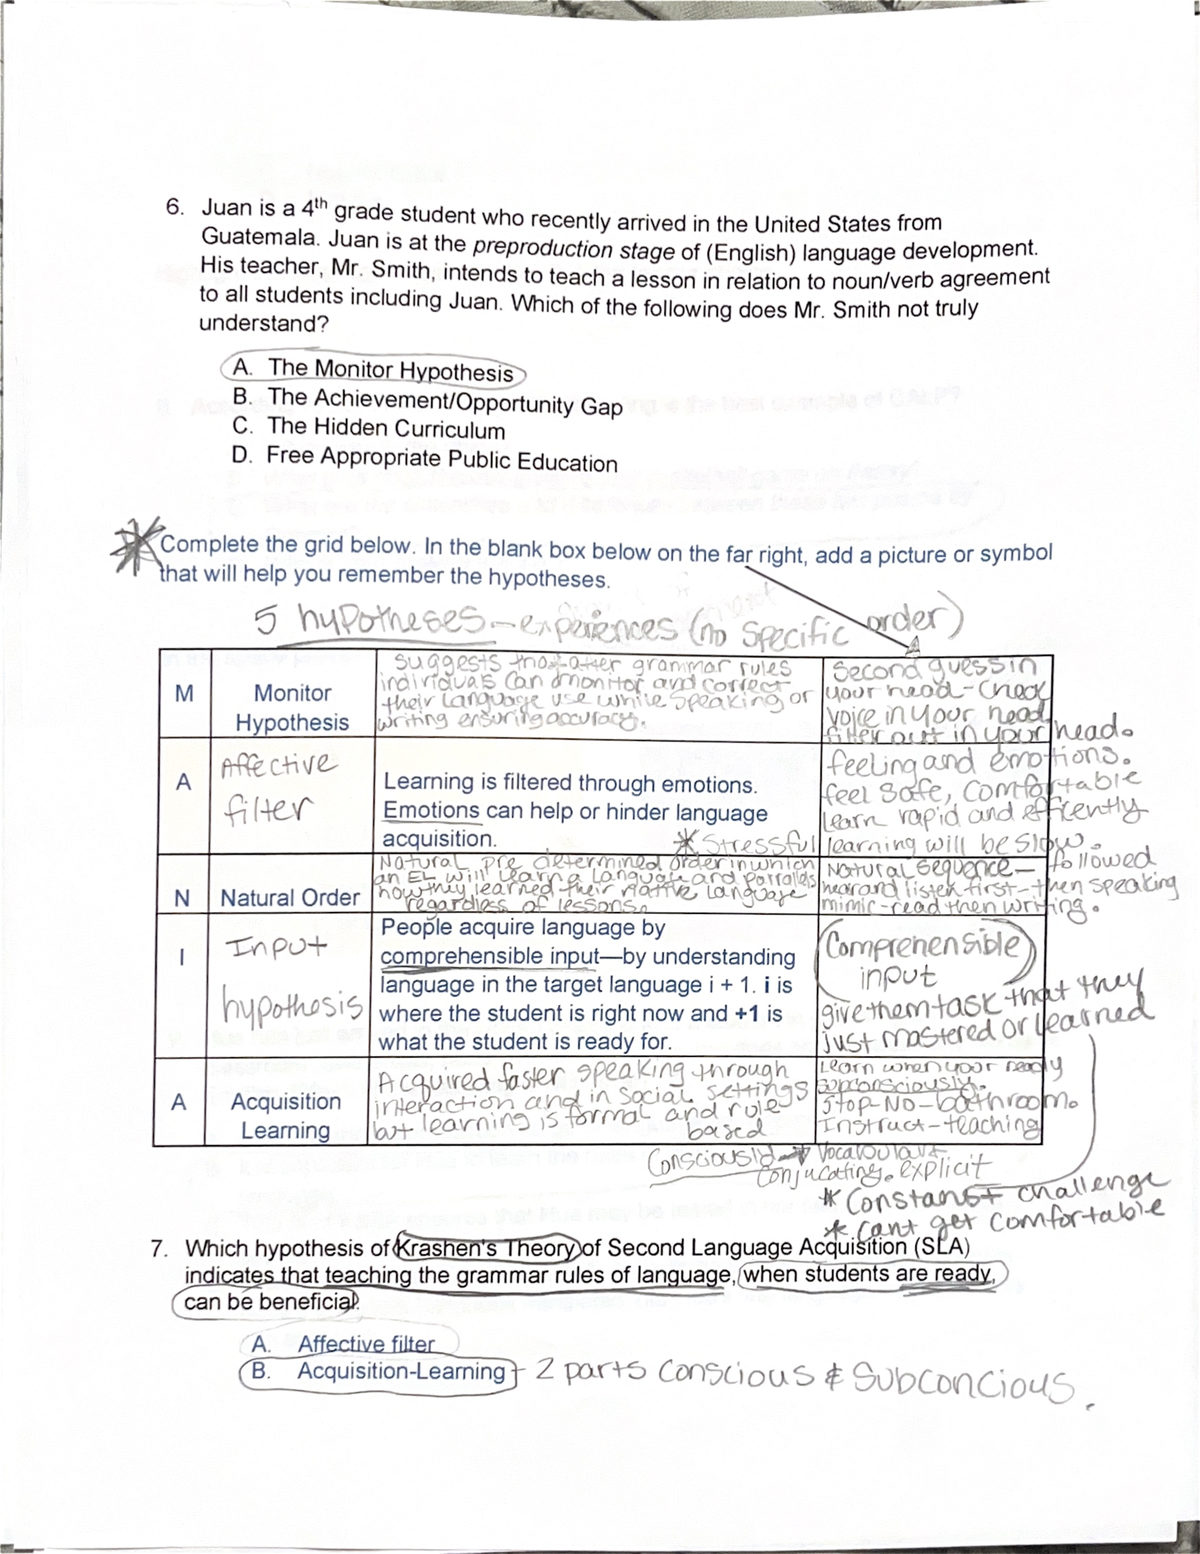 6. Juan is a 4th grade student who recently arrived in the United States from
Guatemala. Juan is at the preproduction stage of (English) language development.
His teacher, Mr. Smith, intends to teach a lesson in relation to noun/verb agreement
to all students including Juan. Which of the following does Mr. Smith not truly
understand?
A. The Monitor Hypothesis
B. The Achievement/Opportunity Gap
C. The Hidden Curriculum
D. Free Appropriate Public Education
Complete the grid below. In the blank box below on the far right, add a picture or symbol
that will help you remember the hypotheses.
5 hypotheses - experiences (no specific order)
M
Monitor
Hypothesis
suggests that after grammar rules
individuals can monitor and correct
their language use while speaking or
writing ensuring accuracy.
second guess in
your head - check
voice in your head
filter out in your head.
A
Affective
filter
Learning is filtered through emotions.
Emotions can help or hinder language
acquisition.
* Stressful learning will be slow.
feeling and emotions.
feel safe, comfortable
learn rapid and efficently
N
Natural Order
Natural pre determined order in which
an EL will learn a language and parralels
how they learned their native language
regardless of lessons.
Natural sequence - followed
hear and listen first - then speaking
mimic - read then writing.
I
Input
hypothesis
People acquire language by
comprehensible input—by understanding
language in the target language i + 1. i is
where the student is right now and +1 is
what the student is ready for.
Comprehensible
input
give them task that they
just mastered or learned
A
Acquisition
Learning
Acquired faster speaking through
interaction and in social settings
but learning is formal and rule
based
Learn when your ready
subconsciously.
Stop - No - bathroom.
Instruct - teaching
Consciously → Vocabulary
conjucating. explicit
* Constanst challenge
* cant get comfortable
7. Which hypothesis of Krashen's Theory of Second Language Acquisition (SLA)
indicates that teaching the grammar rules of language, when students are ready,
can be beneficial.
A. Affective filter
B. Acquisition-Learning - 2 parts conscious & Subconcious.